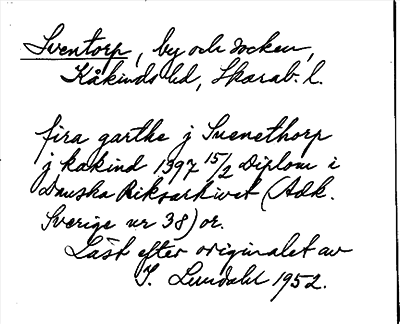 Sventorp, by och socken,
Kåkinds hd, Skarab. l.
fira garthe j Suenethorp
j kakind 1397 15/2 Diplom i
Danska Riksarkivet (Adk.
Sverige nr 38) or.
Läst efter originalet av
I. Lundahl 1952.